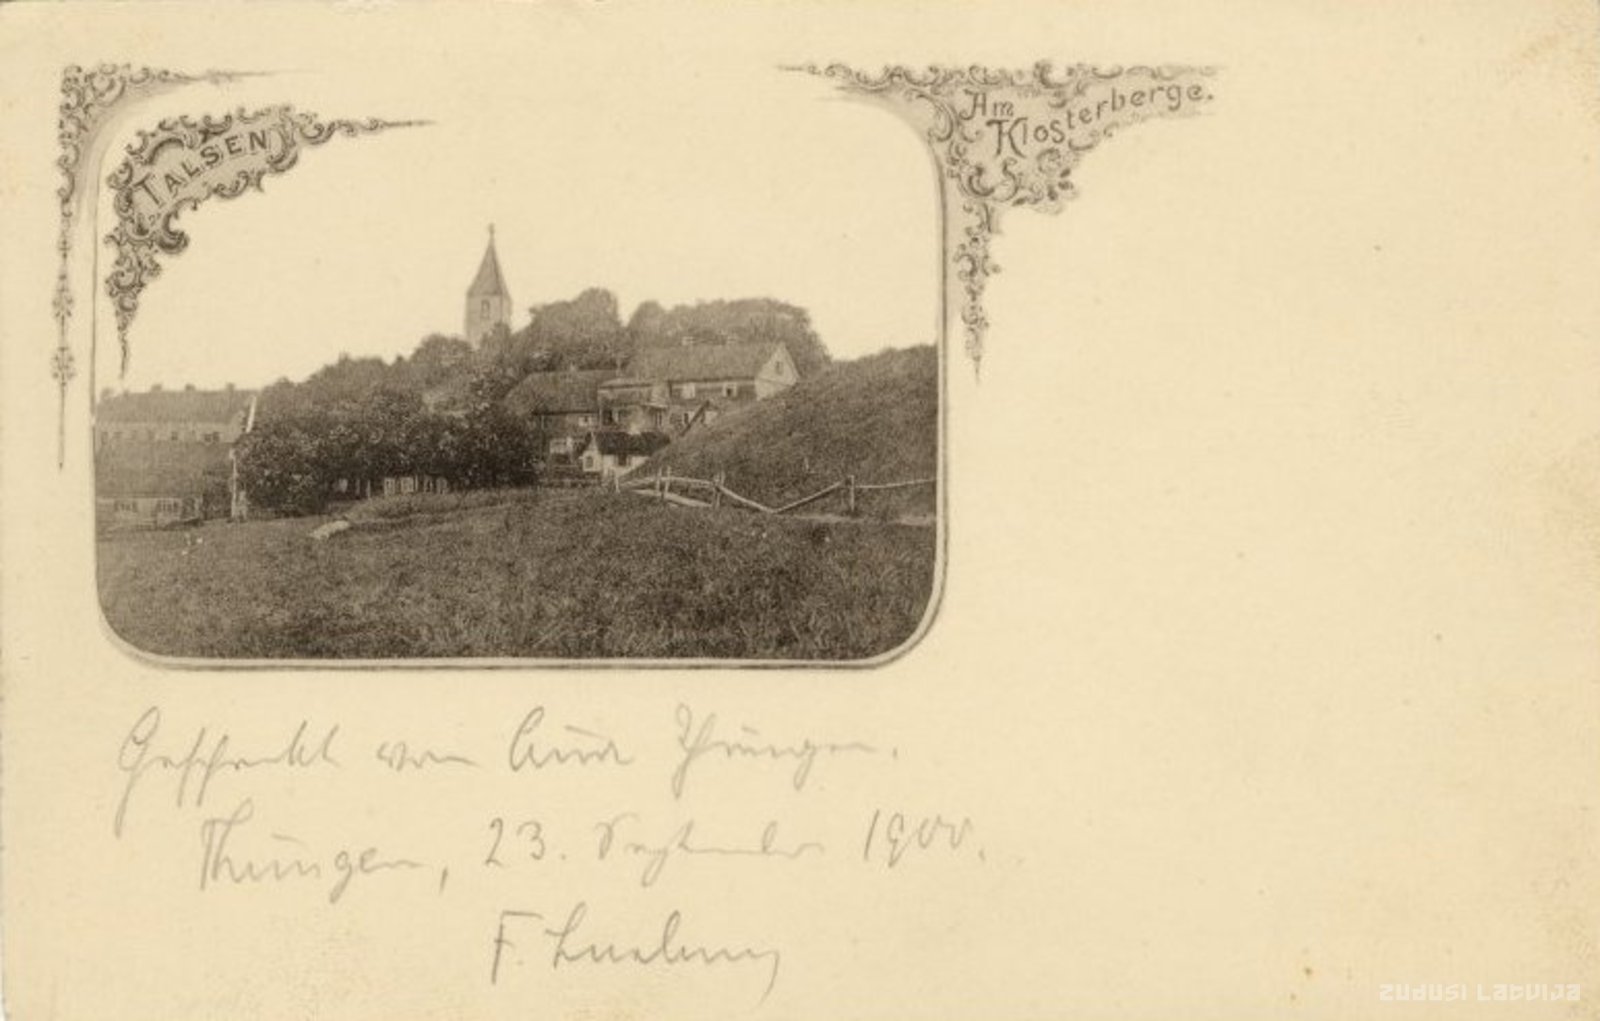 TALSEN
Am
Klosterberge.
Geschenkt von
Thüngen, 23. September 1900.
F.
Zudusi Latvija